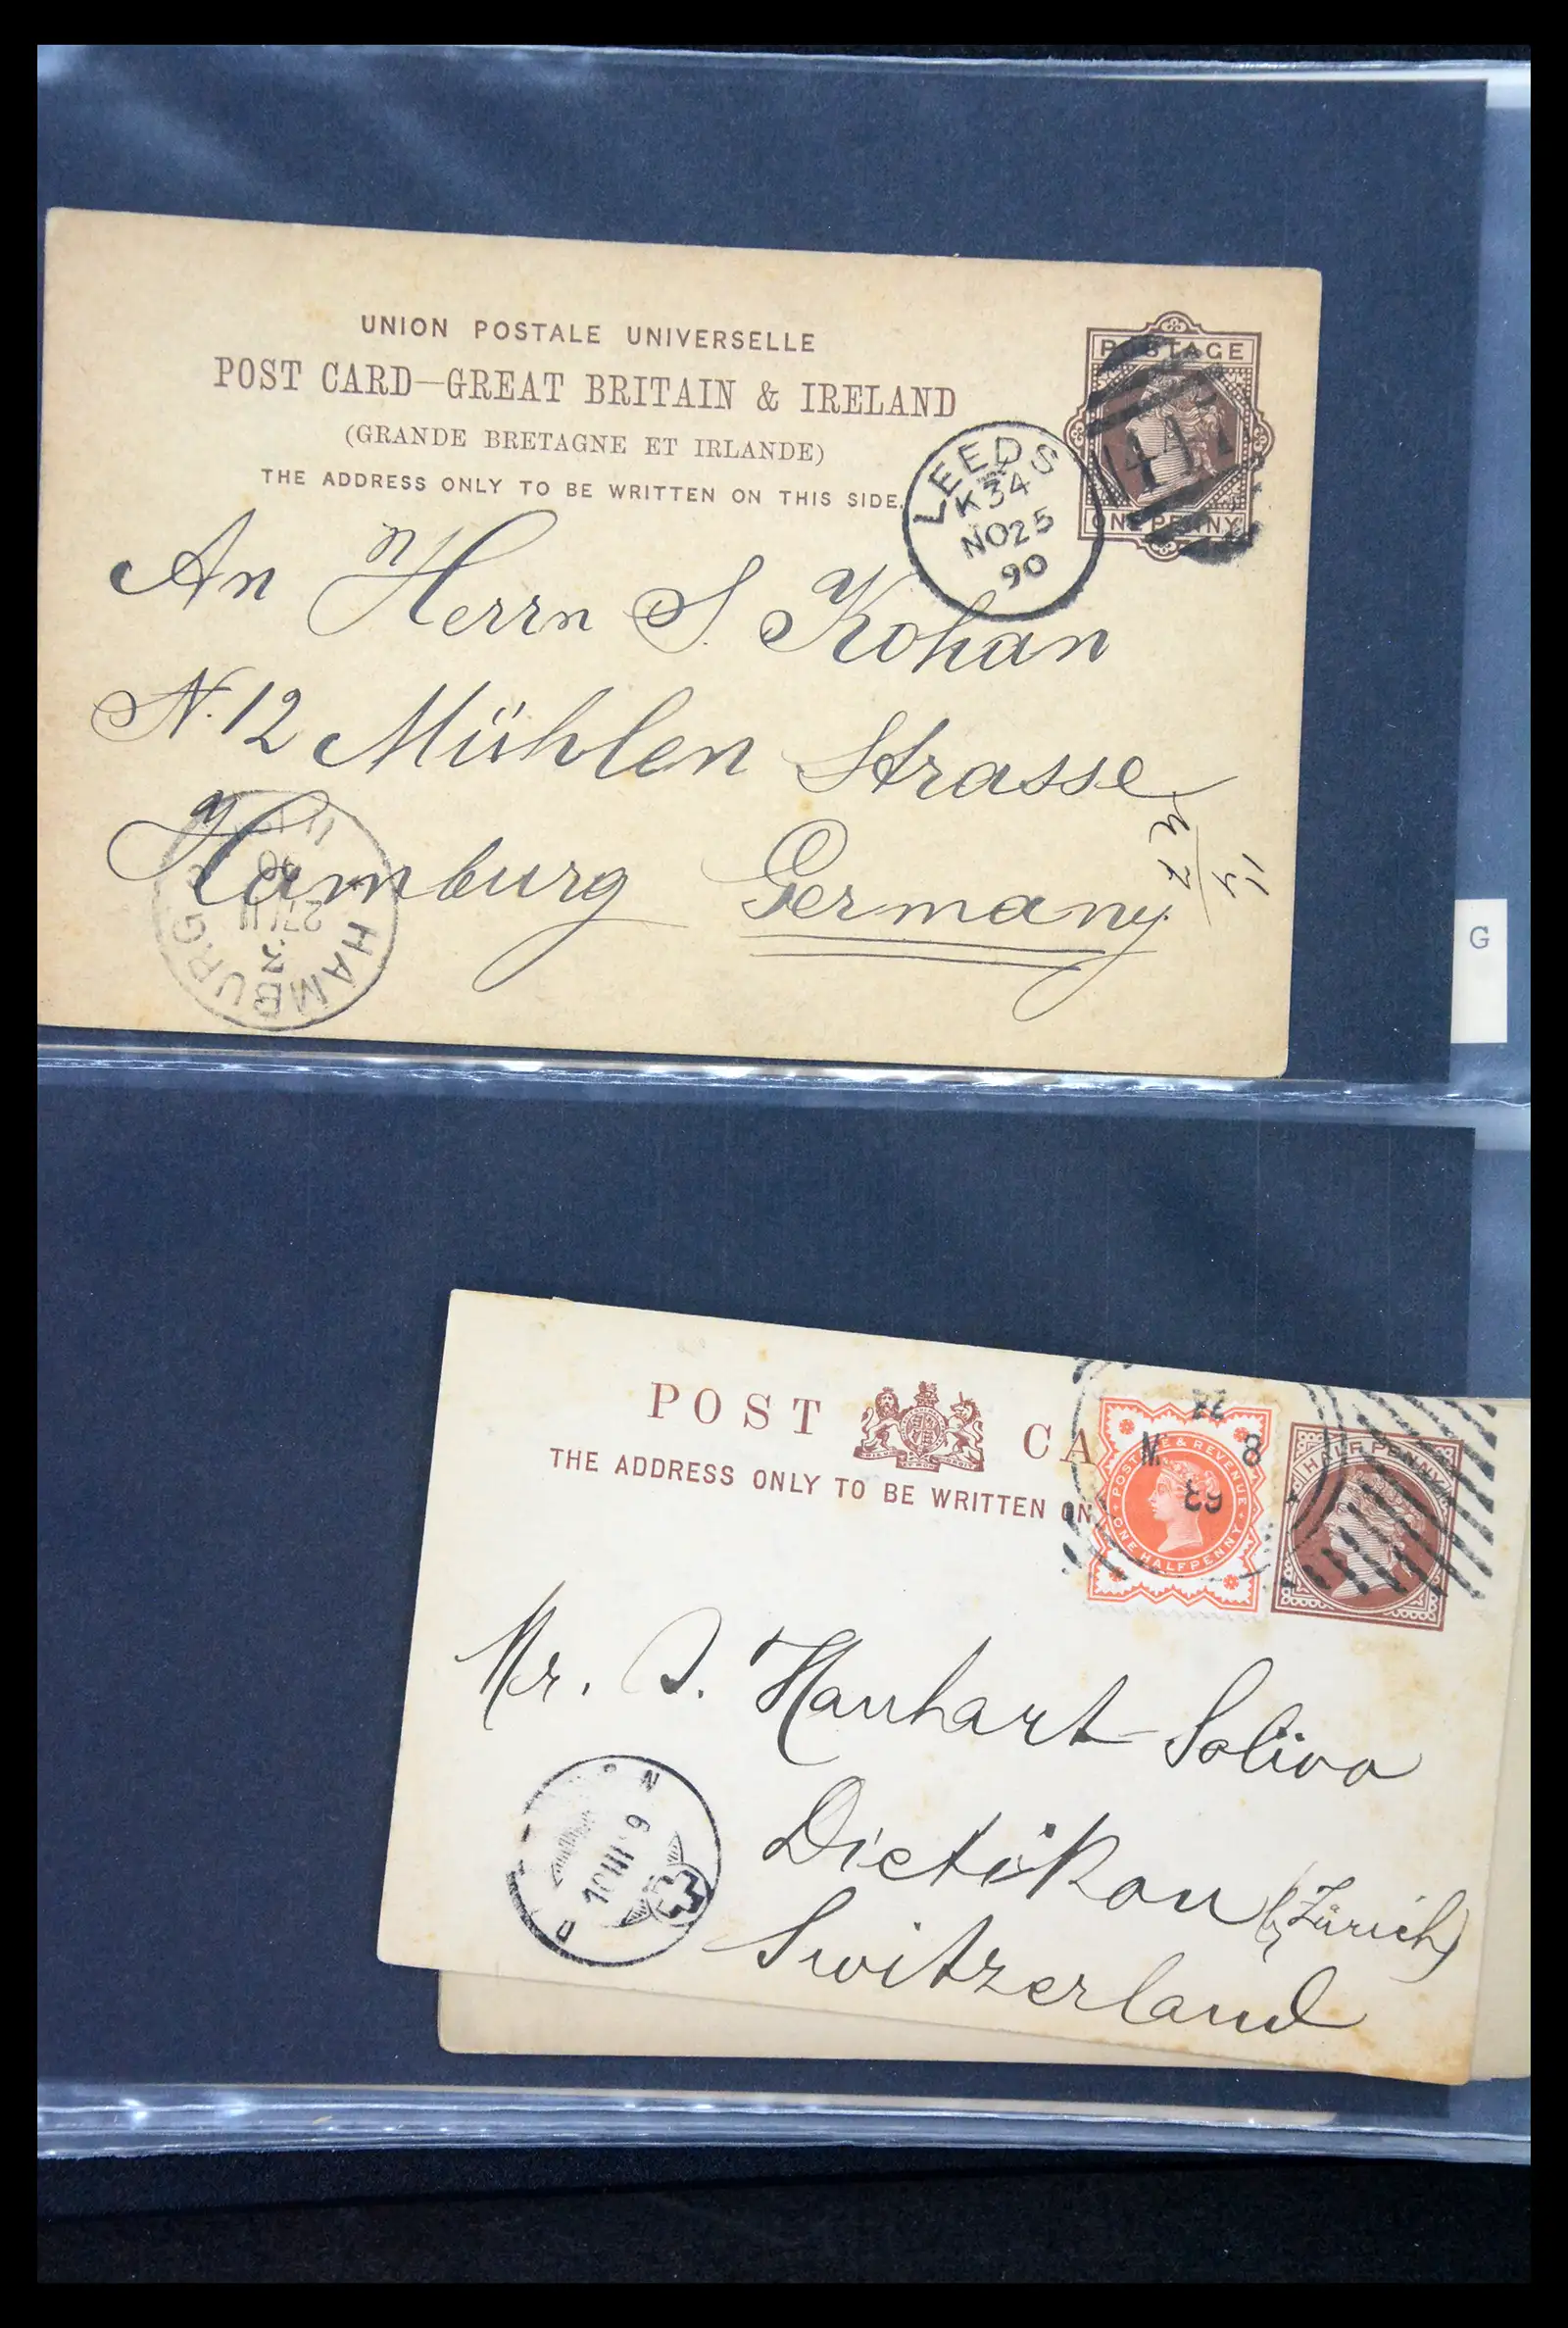 UNION POSTALE UNIVERSELLE
POST CARD—GREAT BRITAIN & IRELAND
(GRANDE BRETAGNE ET IRLANDE)
THE ADDRESS ONLY TO BE WRITTEN ON THIS SIDE.
POSTAGE
447
ONE PENNY
LEEDS
K34
NO25
90
An Herrn S. Kohan
N. 12 Mühlen Strasse
Hamburg Germany.
HAMBURG
27/11
90
G
POST CA
THE ADDRESS ONLY TO BE WRITTEN ON
POSTAGE & REVENUE
ONE HALFPENNY
HALFPENNY
M 8
93
Mr. J. Hanhart-Solivo
Dietikon (b/ Zürich)
Switzerland
10 III 9